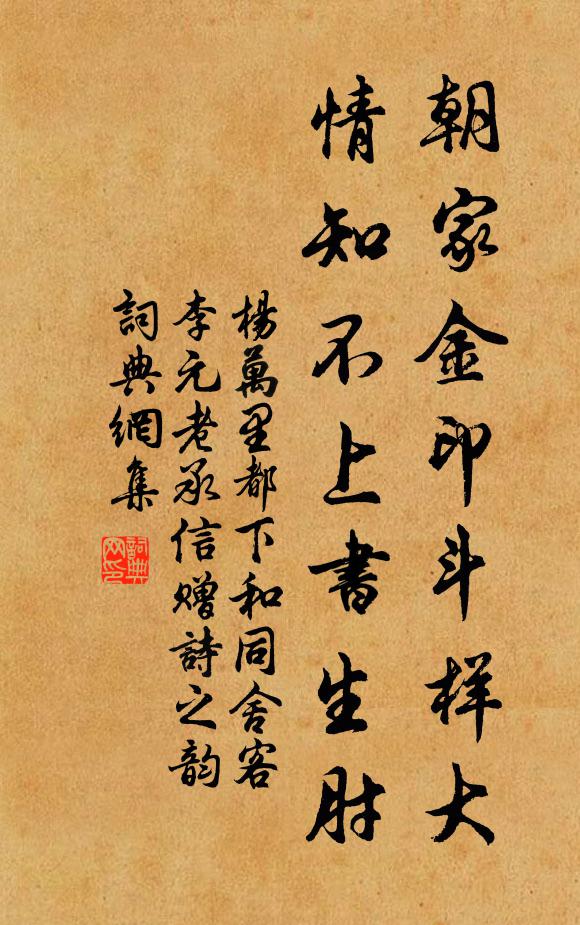 朝家金印斗样大
情知不上書生肘
楊萬里都下和同舍客
李元老承信赠詩之韵
詞典網集
詞典网印